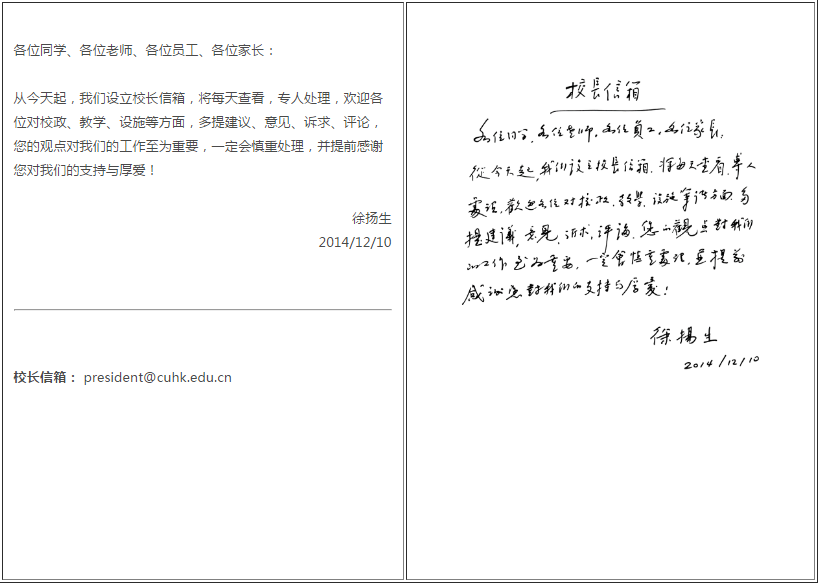 各位同学、各位老师、各位员工、各位家长：
从今天起，我们设立校长信箱，将每天查看，专人处理，欢迎各
位对校政、教学、设施等方面，多提建议、意见、诉求、评论，
您的观点对我们的工作至为重要，一定会慎重处理，并提前感谢
您对我们的支持与厚爱！
徐扬生
2014/12/10
校长信箱： president@cuhk.edu.cn
校長信箱
各位同学，各位老师，各位員工，各位家長：
從今天起，我们设立校長信箱，将每天查看，專人
處理，欢迎各位对校政、教學、设施等诸方面多
提建議，意見，诉求，评論，您的觀点對我们
的工作至为重要，一定會慎重處理，并提前
感谢您對我们的支持与厚爱！
徐揚生
2014/12/10